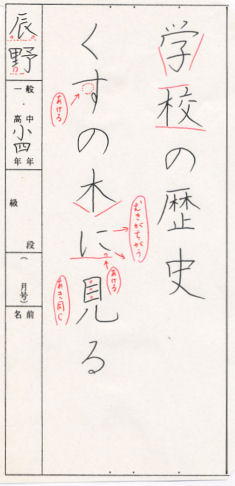 学校の歴史
くすの木に見る
あける
むきがちがう
あける
あき同じ
辰野
一般・中
高 小四年 年
級 段
(月号)
名前